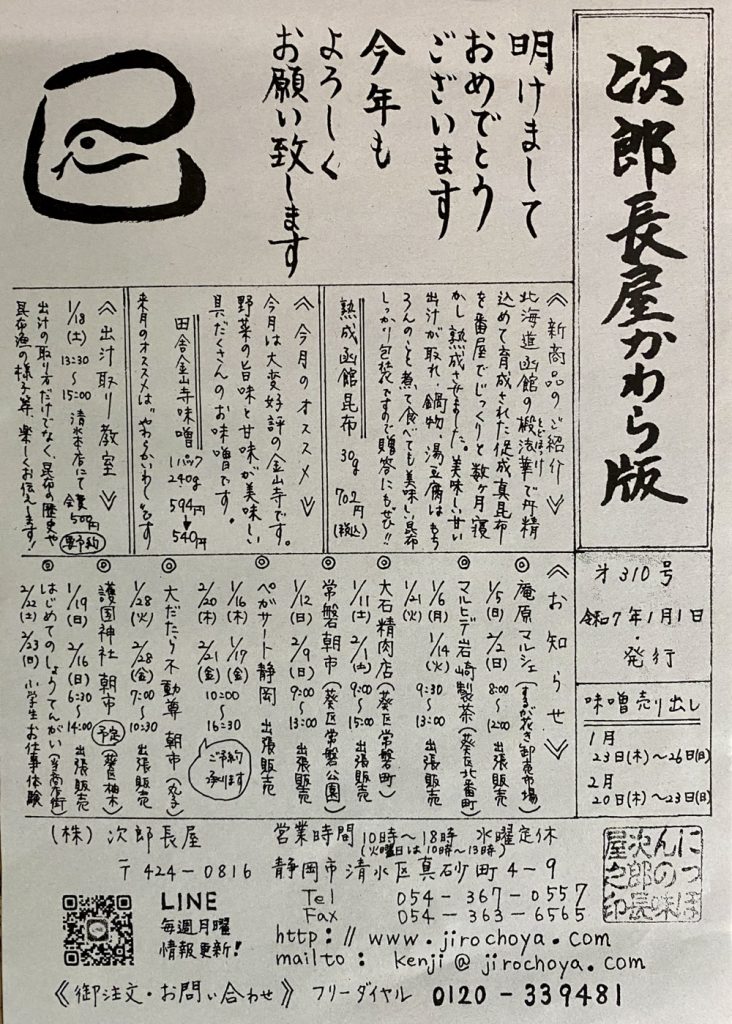 次郎長屋かわら版
明けまして
おめでとう
ございます
今年も
よろしく
お願い致します
巳
才310号
令和7年1月1日
・発行
味噌売り出し
1月
23日(木)~26日(日)
2月
20日(木)~23日(日)
《新商品のご紹介》
北海道函館の椴法華で丹精
とどほっけ
込めて育成された促成真昆布
を番屋でじっくりと数ヶ月寝
かし熟成させました。美味しい甘い
出汁が取れ、鍋物、湯豆腐はもち
ろんのこと煮て食べても美味しい昆布
しっかり包装ですので贈答にもぜひ!!
熟成函館昆布 30g 702円(税込)
《今月のオススメ》
今月は大変好評の金山寺です。
野菜の旨味と甘味が美味しい
具だくさんのお味噌です。
田舎金山寺味噌 1パック 240g 594円→540円
来月のオススメは"やわらかいわし"です
《出汁取り教室》
1/18(土) 13:30~15:00 清水本店にて 会費500円 要予約
出汁の取り方だけでなく、昆布の歴史や
昆布漁の様子等、楽しくお伝えします!
《お知らせ》
◎庵原マルシェ(するが花き卸売市場)
1/5(日) 2/2(日) 8:00~12:00 出張販売
◎マルヒデ岩崎製茶(葵区北番町)
1/6(月) 1/14(火) 9:30~13:00
1/21(火)
◎大石精肉店(葵区常磐町)
1/11(土) 2/1(土) 9:00~15:00 出張販売
◎常磐朝市(葵区常磐公園)
1/12(日) 2/9(日) 9:00~13:00 出張販売
◎ペガサート静岡 出張販売
1/16(木) 1/17(金) 10:00~16:30
2/20(木) 2/21(金)
ご予約承ります
◎大だたら不動尊 朝市(丸子)
1/28(火) 2/28(金) 7:00~10:30 出張販売
◎護国神社 朝市 予定(葵区柚木)
1/19(日) 2/16(日) 6:30~14:00 出張販売
◎はじめてのしょうてんがい
2/22(土) 2/23(日) 小学生お仕事体験
(株)次郎長屋
営業時間 10時~18時 水曜定休
(火曜日は10時~13時)
〒424-0816 静岡市清水区真砂町4-9
Tel 054-367-0557
Fax 054-363-6565
http://www.jirochoya.com
mailto: kenji@jirochoya.com
LINE
毎週月曜
情報更新!
《御注文・お問い合わせ》 フリーダイヤル 0120-339481
にっぽ
んの味
次郎長
屋之印